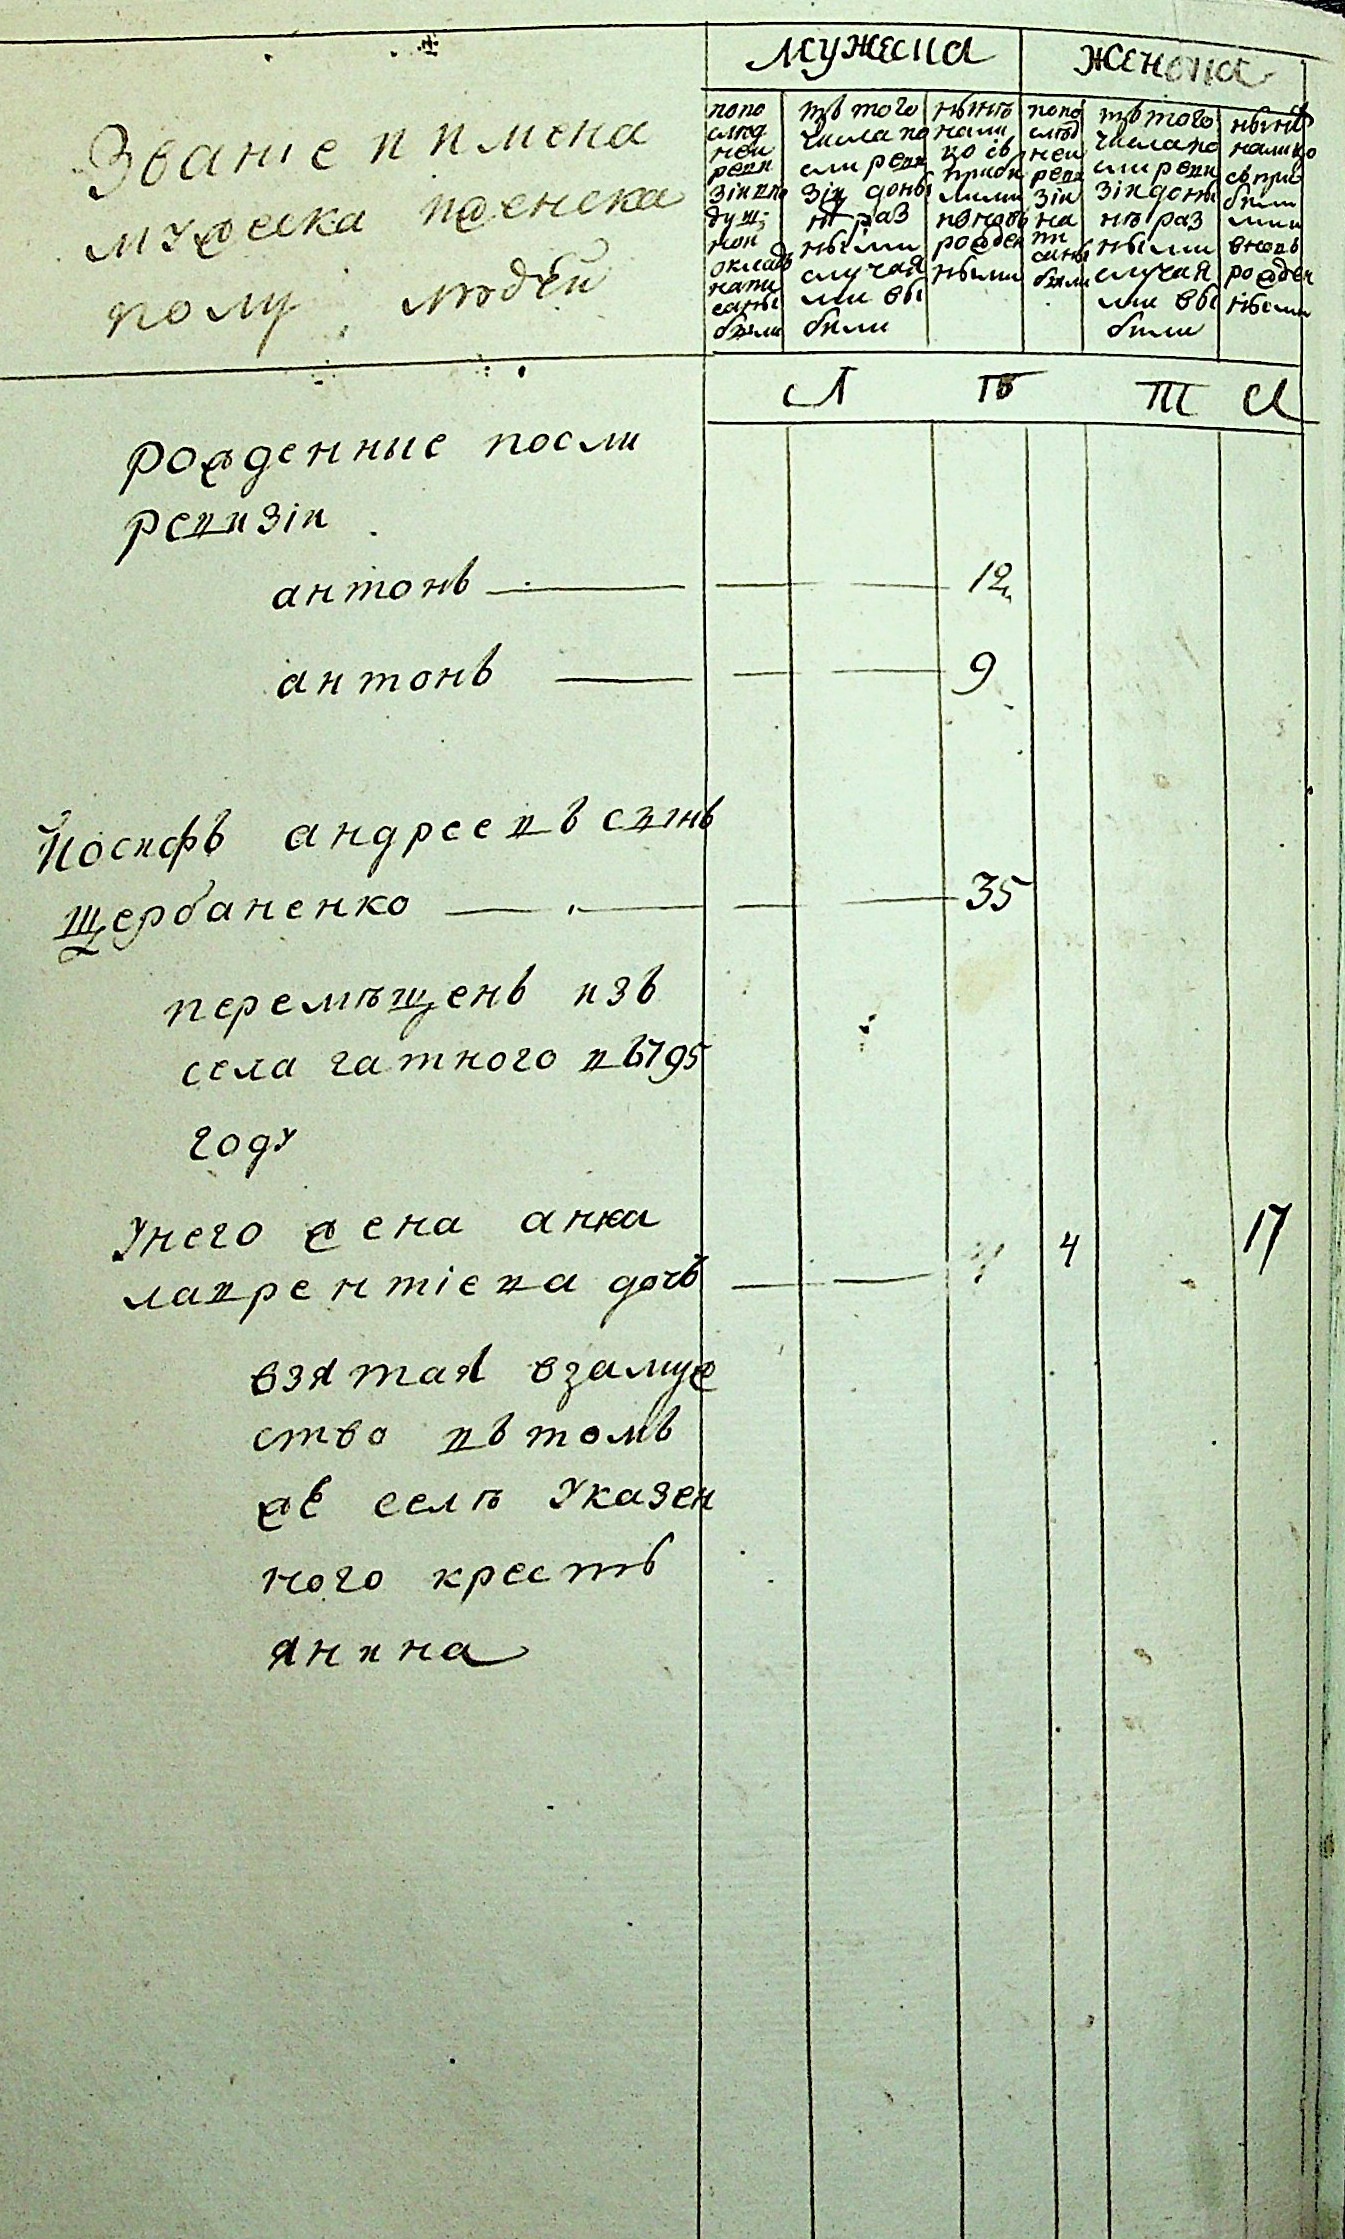 мужеска
женска
Званіе и имена
мужеска иженска
полу людей
попо
слѣд
ней
реви
зіи по
душ
ной
окладъ
напи
саны
были
изъ того
числа по
сли реви
зіи доны
нѣ раз
ными
случая
ми вы
были
нынѣ
нали
цо съ
прибы
лыми
вновь
рожден
ными
попо
слѣд
ней
реви
зіи
на
пи
саны
были
изъ того
числа по
сли реви
зіи доны
нѣ раз
ными
случая
ми вы
были
нынѣ
налицо
съ при
были
ми
вновь
рожден
ными
Л Ѣ Т А
рожденные посли
ревизіи
антонъ 12
антонъ 9
Йосифъ андреевъ сынъ
щербаненко 35
перемѣщенъ изъ
села гатного въ795
году
Унего жена анна
лаврентіева дочь 4 17
взятая взамуж
ство въ томъ
же селѣ Указен
ного кресть
янина